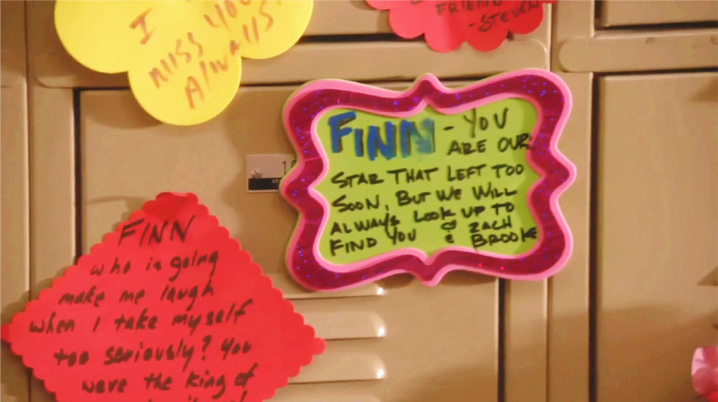 I
MISS YOU
Always!
FRIEND
-STEVEN
FINN - YOU
ARE OUR
STAR THAT LEFT TOO
SOON, BUT WE WILL
ALWAYS LOOK UP TO
FIND YOU ZACH
& BROOKE
FINN
who is going
make me laugh
when I take myself
too seriously? You
were the king of